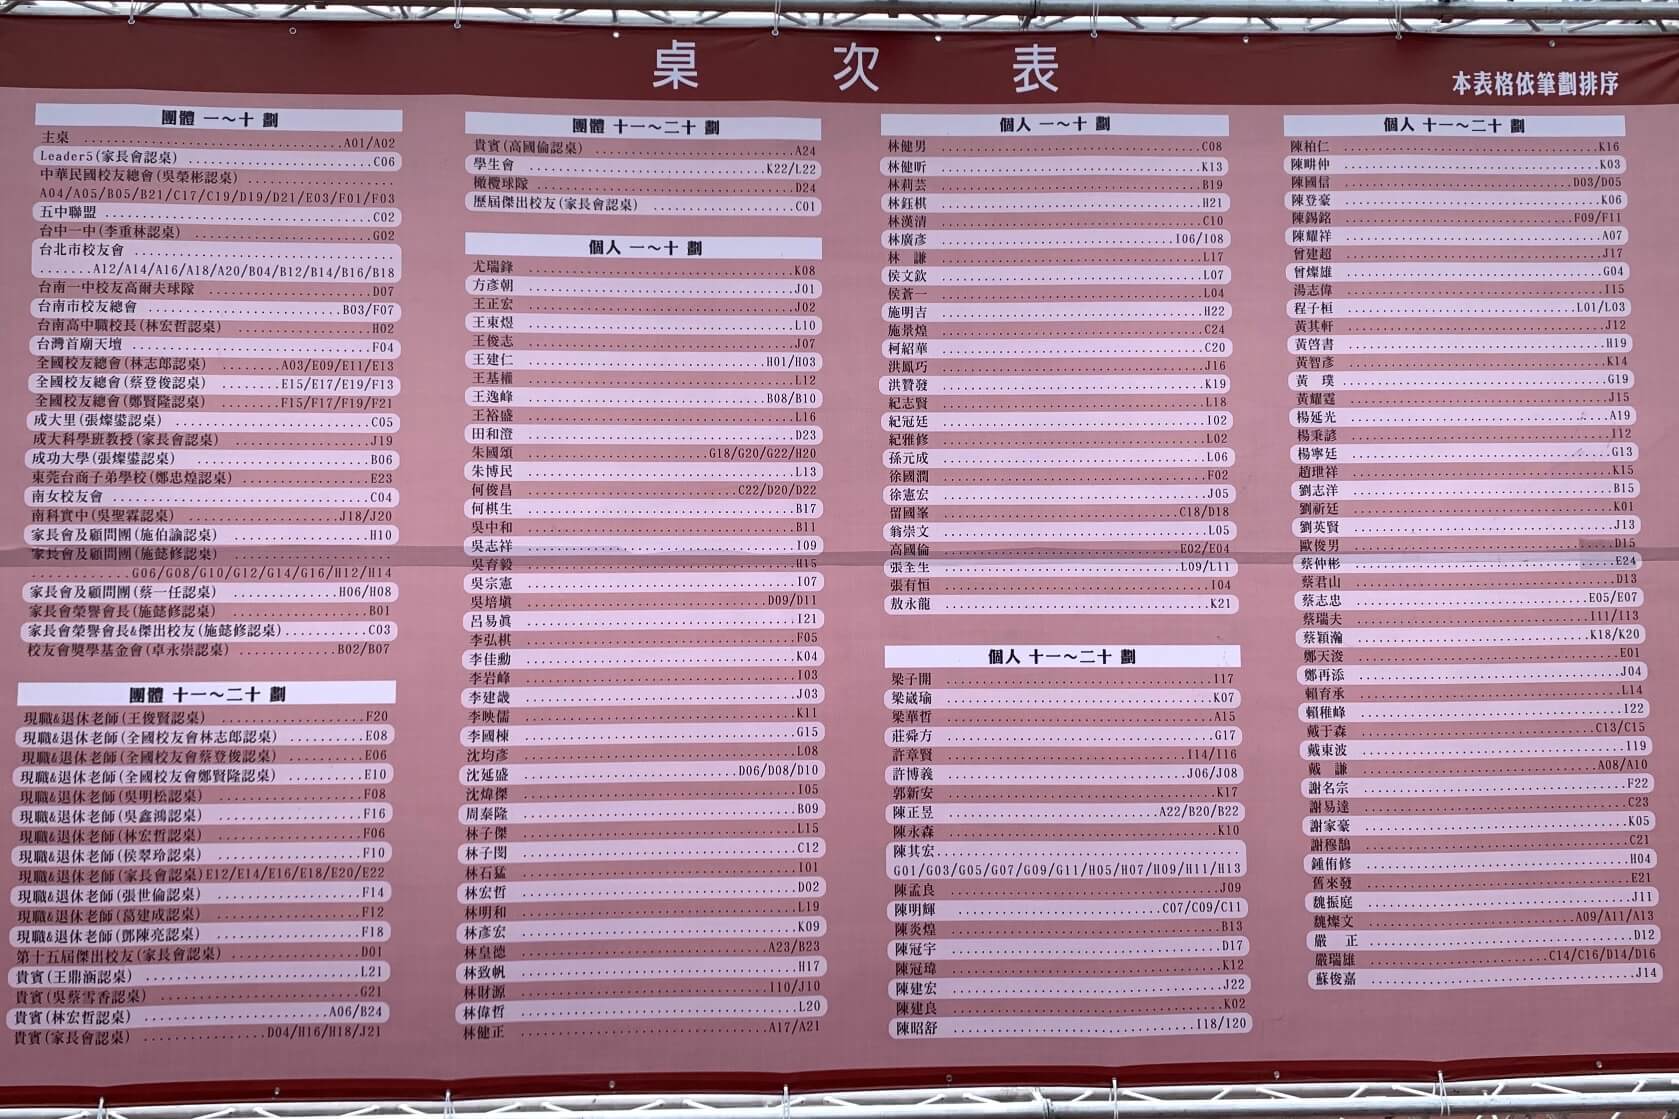 桌次表
本表格依筆劃排序
團體 一～十 劃
主桌 A01/A02
Leader5(家長會認桌) C06
中華民國校友總會(吳榮彬認桌)
A04/A05/B05/B21/C17/C19/D19/D21/E03/F01/F03
五中聯盟 C02
台中一中(李重林認桌) G02
台北市校友會
A12/A14/A16/A18/A20/B04/B12/B14/B16/B18
台南一中校友高爾夫球隊 D07
台南市校友總會 B03/F07
台南高中職校長(林宏哲認桌) H02
台灣首廟天壇 F04
全國校友總會(林志郎認桌) A03/E09/E11/E13
全國校友總會(蔡登俊認桌) E15/E17/E19/F13
全國校友總會(鄭賢隆認桌) F15/F17/F19/F21
成大里(張燦鍙認桌) C05
成大科學班教授(家長會認桌) J19
成功大學(張燦鍙認桌) B06
東莞台商子弟學校(鄭忠煌認桌) E23
南女校友會 C04
南科實中(吳聖霖認桌) J18/J20
家長會及顧問團(施伯諭認桌) H10
家長會及顧問團(施懿修認桌)
G06/G08/G10/G12/G14/G16/H12/H14
家長會及顧問團(蔡一任認桌) H06/H08
家長會榮譽會長(施懿修認桌) B01
家長會榮譽會長&傑出校友(施懿修認桌) C03
校友會獎學基金會(卓永崇認桌) B02/B07
團體 十一～二十 劃
現職&退休老師(王俊賢認桌) F20
現職&退休老師(全國校友會林志郎認桌) E08
現職&退休老師(全國校友會蔡登俊認桌) E06
現職&退休老師(全國校友會鄭賢隆認桌) E10
現職&退休老師(吳明松認桌) F08
現職&退休老師(吳鑫鴻認桌) F16
現職&退休老師(林宏哲認桌) F06
現職&退休老師(侯翠玲認桌) F10
現職&退休老師(家長會認桌)E12/E14/E16/E18/E20/E22
現職&退休老師(張世倫認桌) F14
現職&退休老師(葛建成認桌) F12
現職&退休老師(鄧陳亮認桌) F18
第十五屆傑出校友(家長會認桌) D01
貴賓(王鼎涵認桌) L21
貴賓(吳蔡雪香認桌) G21
貴賓(林宏哲認桌) A06/B24
貴賓(家長會認桌) D04/H16/H18/J21
團體 十一～二十 劃
貴賓(高國倫認桌) A24
學生會 K22/L22
橄欖球隊 D24
歷屆傑出校友(家長會認桌) C01
個人 一～十 劃
尤瑞鋒 K08
方彥朝 J01
王正宏 J02
王東煜 L10
王俊志 J07
王建仁 H01/H03
王基權 L12
王逸峰 B08/B10
王裕盛 L16
田和澄 D23
朱國頌 G18/G20/G22/H20
朱博民 L13
何俊昌 C22/D20/D22
何棋生 B17
吳中和 B11
吳志祥 I09
吳育毅 H15
吳宗憲 I07
吳培塡 D09/D11
呂易眞 I21
李弘棋 F05
李佳勳 K04
李岩峰 I03
李建畿 J03
李映儒 K11
李國棟 G15
沈均彥 L08
沈延盛 D06/D08/D10
沈煒傑 I05
周泰隆 B09
林子傑 L15
林子閔 C12
林石猛 I01
林宏哲 D02
林明和 L19
林彥宏 K09
林皇德 A23/B23
林致帆 H17
林財源 I10/J10
林偉哲 L20
林健正 A17/A21
個人 一～十 劃
林健男 C08
林健昕 K13
林莉芸 B19
林鈺棋 H21
林漢清 C10
林廣彥 I06/I08
林 謙 L17
侯文欽 L07
侯蒼一 L04
施明吉 H22
施景煌 C24
柯紹華 C20
洪鳳巧 J16
洪贊發 K19
紀志賢 L18
紀冠廷 I02
紀雅修 L02
孫元成 L06
徐國潤 F02
徐憲宏 J05
留國峯 C18/D18
翁崇文 L05
高國倫 E02/E04
張全生 L09/L11
張有恒 I04
敖永龍 K21
個人 十一～二十 劃
梁子開 I17
梁崴瑜 K07
梁華哲 A15
莊舜方 G17
許章賢 I14/I16
許博義 J06/J08
郭新安 K17
陳正昱 A22/B20/B22
陳永森 K10
陳其宏
G01/G03/G05/G07/G09/G11/H05/H07/H09/H11/H13
陳孟良 J09
陳明輝 C07/C09/C11
陳炎煌 B13
陳冠宇 D17
陳冠瑋 K12
陳建宏 J22
陳建良 K02
陳昭舒 I18/I20
個人 十一～二十 劃
陳柏仁 K16
陳畊仲 K03
陳國信 D03/D05
陳登豪 K06
陳錫銘 F09/F11
陳耀祥 A07
曾建超 J17
曾燦雄 G04
湯志偉 I15
程子桓 L01/L03
黃其軒 J12
黃啓書 H19
黃智彥 K14
黃 璞 G19
黃耀霆 J15
楊延光 A19
楊秉諺 I12
楊寧廷 G13
趙玴祥 K15
劉志洋 B15
劉祈廷 K01
劉英賢 J13
歐俊男 D15
蔡仲彬 E24
蔡君山 D13
蔡志忠 E05/E07
蔡瑞夫 I11/I13
蔡穎瀚 K18/K20
鄭天浚 E01
鄭再添 J04
賴育承 L14
賴稚峰 I22
戴于森 C13/C15
戴東波 I19
戴 謙 A08/A10
謝名宗 F22
謝易達 C23
謝家豪 K05
謝穆鵠 C21
鍾侑修 H04
舊來發 E21
魏振庭 J11
魏燦文 A09/A11/A13
嚴 正 D12
嚴瑞雄 C14/C16/D14/D16
蘇俊嘉 J14